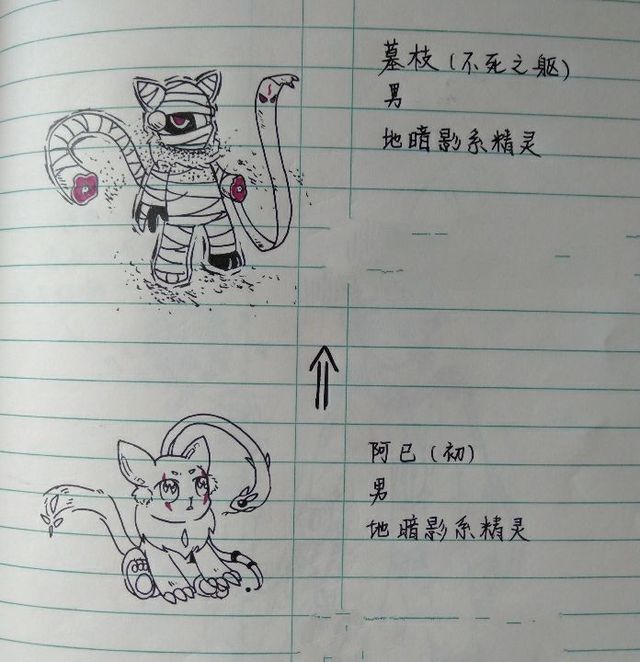 墓枝（不死之躯）
男
地暗影系精灵
阿已（初）
男
地暗影系精灵